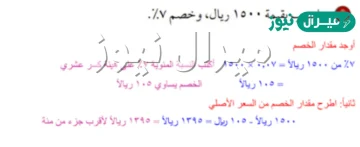 ميزال نيوز
بقيمة ١٥٠٠ ريال، وخصم ٧٪.
أوجد مقدار الخصم
٧٪ من ١٥٠٠ ريالاً = ٠٫٠٧ × ١٥٠٠ أكتب النسبة المئوية ٧٪ على هيئة كسر عشري
= ١٠٥ ريالاً الخصم يساوي ١٠٥ ريالاً
ثانياً: اطرح مقدار الخصم من السعر الأصلي
١٥٠٠ ريالاً - ١٠٥ ريال = ١٣٩٥ ريالاً = ١٣٩٥ ريالاً لأقرب جزء من مئة
ميزال نيوز